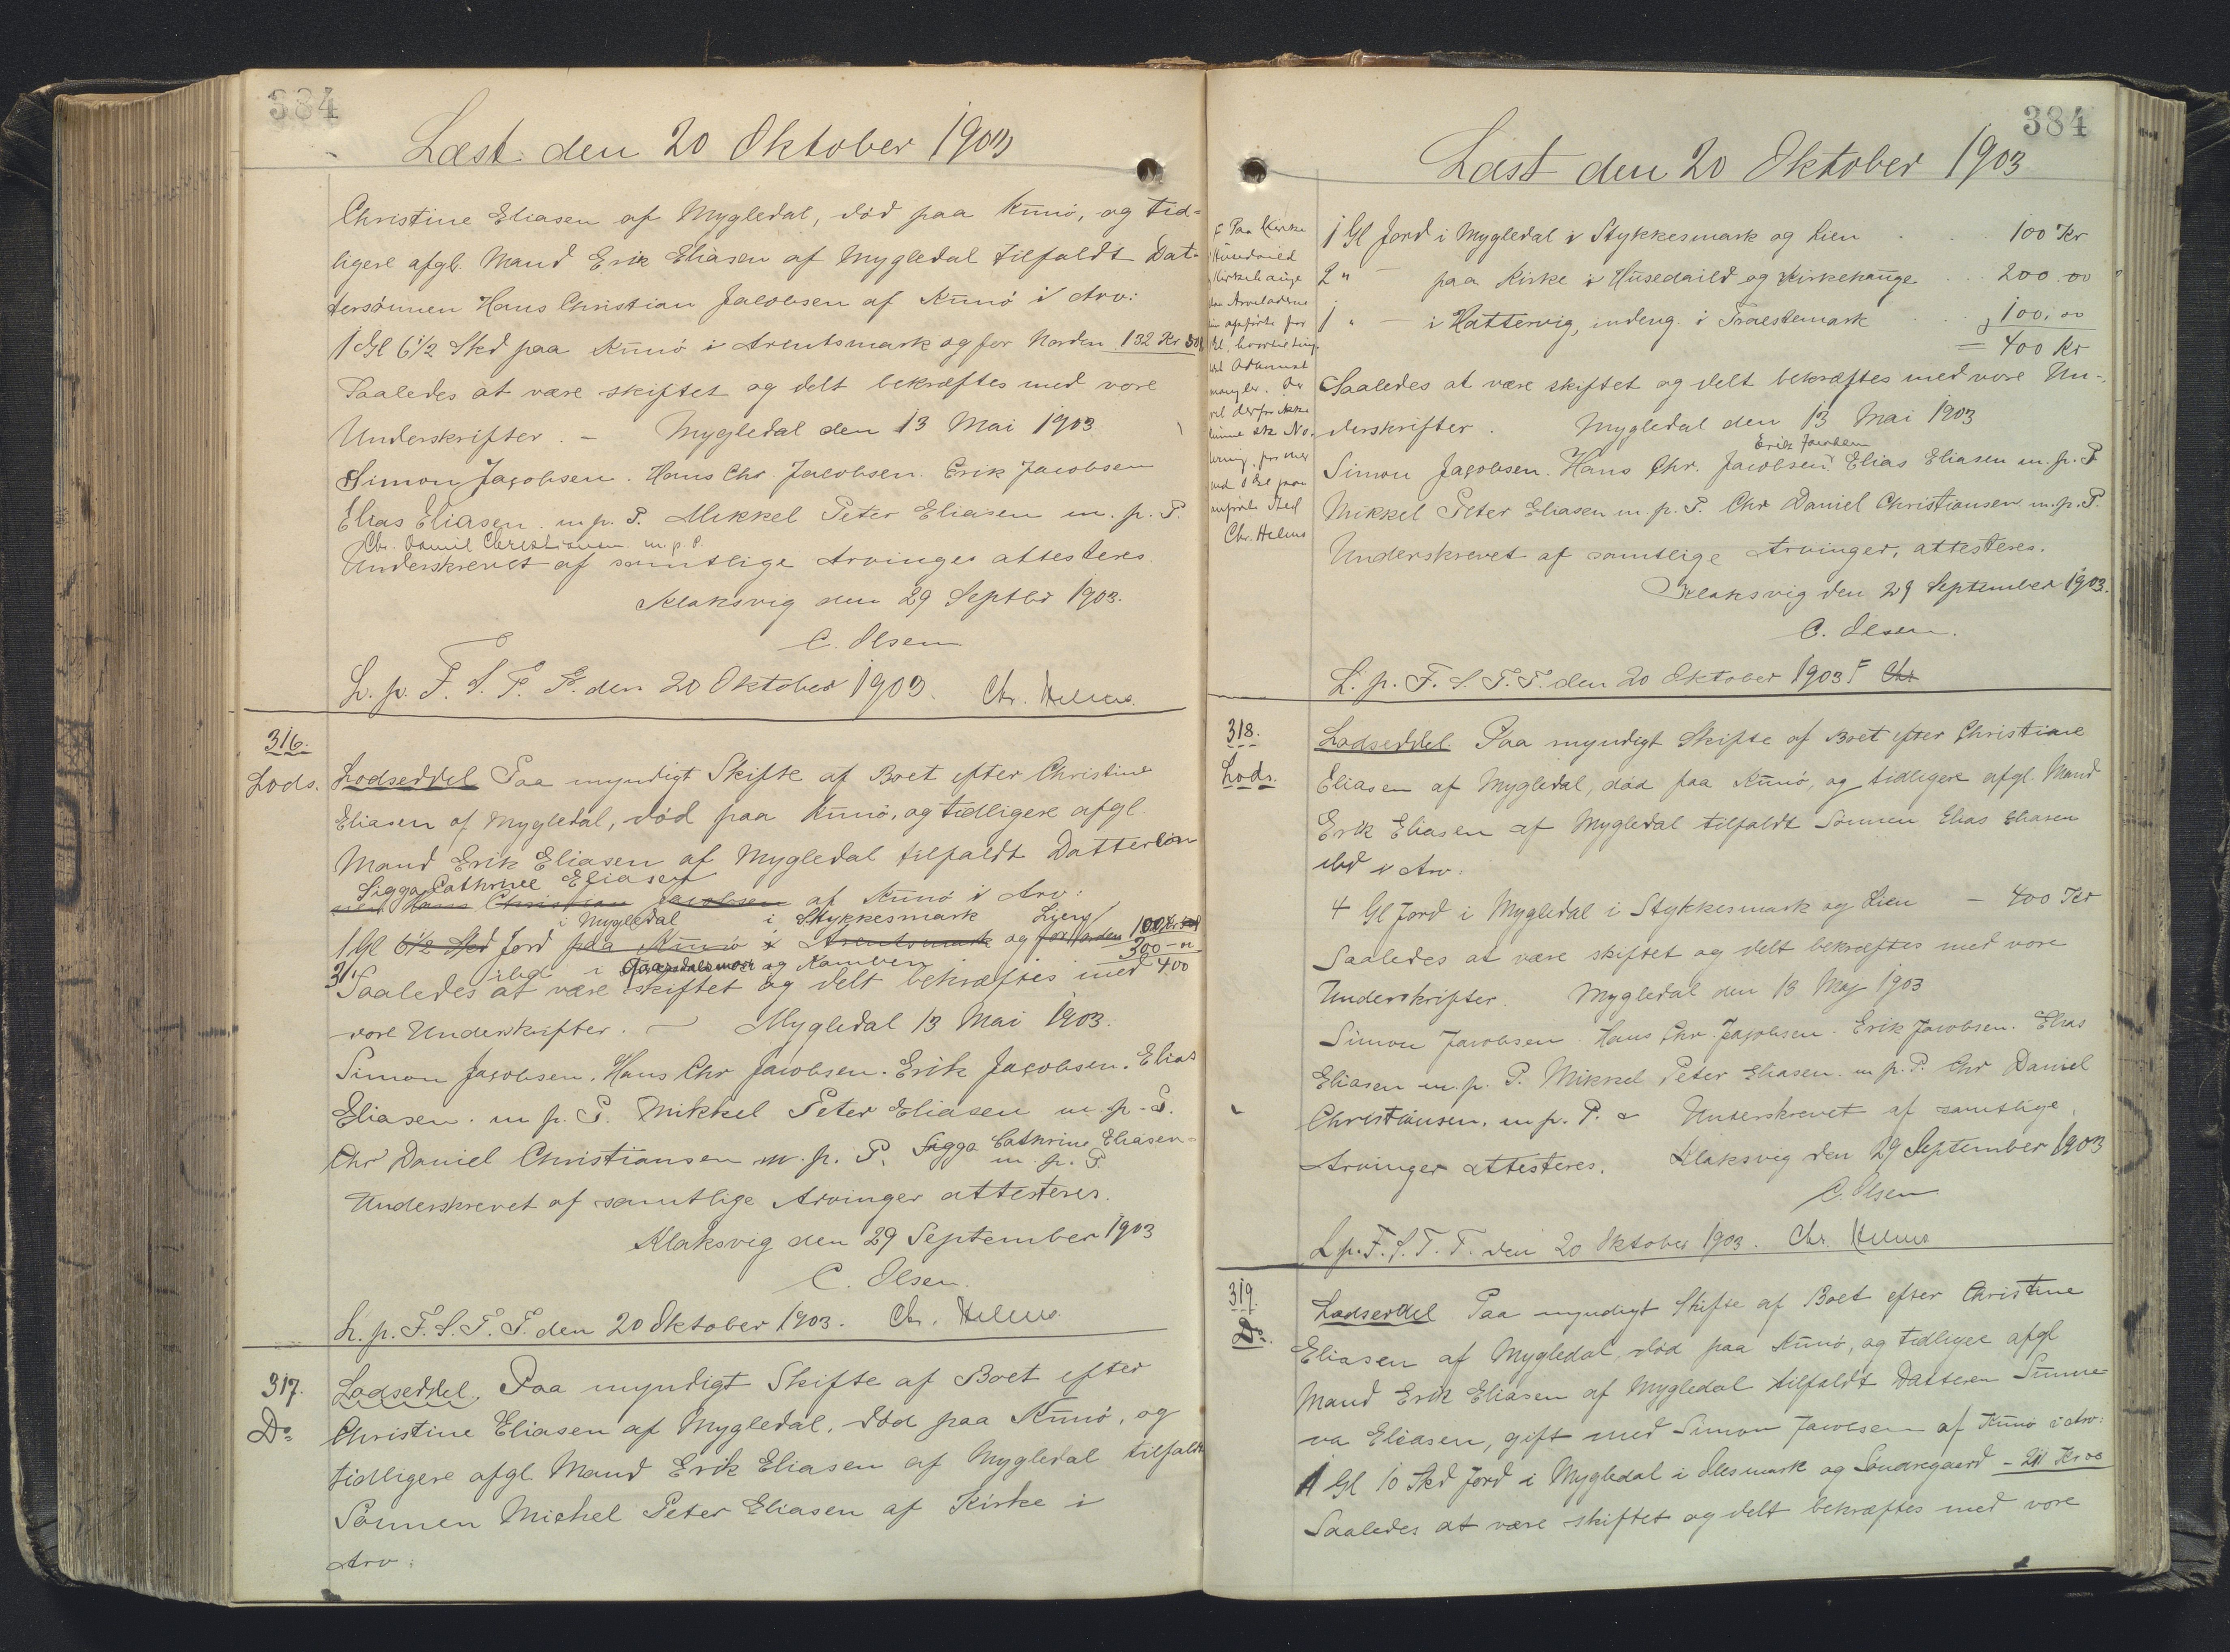 384
Læst den 20 Oktober 1903
Christine Eliasen af Mygledal, död paa Kunö, og tid-
ligere afgl. Mand Erik Eliasen af Mygledal tilfaldt Dat-
tersönnen Hans Christian Jacobsen af Kunö i Arv:
1 Gl 6 1/2 Skd paa Kunö i Arentsmark og for Norden 132 Kr 50
Saaledes at være skiftet og delt bekræftes med vore
Underskrifter. – Mygledal den 13 Mai 1903
Simon Jacobsen. Hans Chr. Jacobsen. Erik Jacobsen
Elias Eliasen. m. p. P. Mikkel Peter Eliasen m. p. P.
Chr. Daniel Christiansen m. p. P.
Underskrevet af samtlige Arvinger attesteres
Klaksvig den 29 Septbr 1903.
C. Olsen
L. p. F. S. T. T. den 20 Oktober 1903. Chr. Helms.
316.
Lods. Lodseddel Paa myndigt Skifte af Boet efter Christine
Eliasen af Mygledal, död paa Kunö, og tidligere afgl.
Mand Erik Eliasen af Mygledal tilfaldt Dattersön
Sigga Cathrine Eliasen
nen Hans Christian Jacobsen af Kunö i Arv:
i Mygledal i Stykkesmark
1 Gl 6 1/2 Skd Jord paa Kunö i Arentsmark og for Norden 100 Kr
3 " ibd i og Kamben 300 –
400
Saaledes at være skiftet og delt bekræftes med
vore Underskrifter. – Mygledal 13 Mai 1903.
Simon Jacobsen. Hans Chr Jacobsen. Erik Jacobsen. Elias
Eliasen. m. p. P. Mikkel Peter Eliasen m. p. P.
Chr Daniel Christiansen m. p. P. Sigga Cathrine Eliasen
m. p. P.
Underskrevet af samtlige Arvinger attesteres.
Klaksvig den 29 September 1903
C. Olsen.
L. p. F. S. T. T. den 20 Oktober 1903. Chr. Helms.
317. Lodseddel. Paa myndigt Skifte af Boet efter
Do Christine Eliasen af Mygledal, död paa Kunö, og
tidligere afgl. Mand Erik Eliasen af Mygledal tilfaldt
Sönnen Michel Peter Eliasen af Kirke i
Arv:
384
Læst den 20 Oktober 1903
1 Gl Jord i Mygledal i Stykkesmark og Lien 100 Kr
2 " – paa Kirke i Husedaild og Kirkehauge 200.00
1 " – i Hattervig, indeng. i Traelemark 100,00
= 400 Kr
Saaledes at være skiftet og delt bekræftes med vore Un-
derskrifter. Mygledal den 13 Mai 1903
Erik Jacobsen
Simon Jacobsen. Hans Chr. Jacobsen. Elias Eliasen m. p. P.
Mikkel Peter Eliasen m. p. P. Chr Daniel Christiansen m. p. P.
Underskrevet af samtlige Arvinger, attesteres.
Klaksvig den 29 September 1903.
C. Olsen.
L. p. F. S. T. T. den 20 Oktober 1903 F Chr
F Paa Kirke
Husedaild
Kirkehauge
mangler. Der
vil derfor ikke
kunne ske No-
tering
Chr. Helms
318.
Lods. Lodseddel. Paa myndigt Skifte af Boet efter Christine
Eliasen af Mygledal, död paa Kunö, og tidligere afgl. Mand
Erik Eliasen af Mygledal tilfaldt Sönnen Elias Eliasen
ibd i Arv:
4 Gl Jord i Mygledal i Stykkesmark og Lien – 400 Kr
Saaledes at være skiftet og delt bekræftes med vore
Underskrifter. Mygledal den 13 Maj 1903
Simon Jacobsen. Hans Chr. Jacobsen. Erik Jacobsen. Elias
Eliasen m. p. P. Mikkel Peter Eliasen. m. p. P. Chr Daniel
Christiansen. m. p. P. Underskrevet af samtlige
Arvinger attesteres. Klaksvig den 29 September 1903
C. Olsen
L. p. F. S. T. T. den 20 Oktober 1903. Chr. Helms
319.
Do. Lodseddel Paa myndigt Skifte af Boet efter Christine
Eliasen af Mygledal, död paa Kunö, og tidligere afgl
Mand Erik Eliasen af Mygledal tilfaldt Datteren Sunne-
va Eliasen, gift med Simon Jacobsen af Kunö i Arv:
1 Gl 10 Skd Jord i Mygledal i Olesmark og Sönaregaard – 211 Kr 00
Saaledes at være skiftet og delt bekræftes med vore